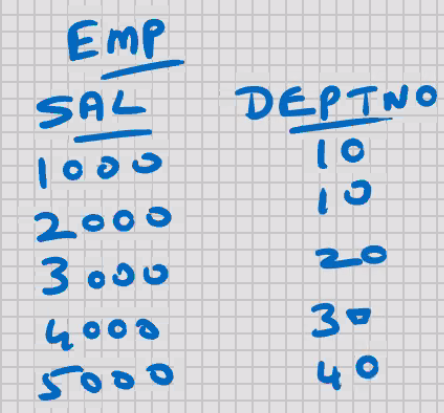 EMP
SAL DEPTNO
1000 10
2000 10
3000 20
4000 30
5000 40